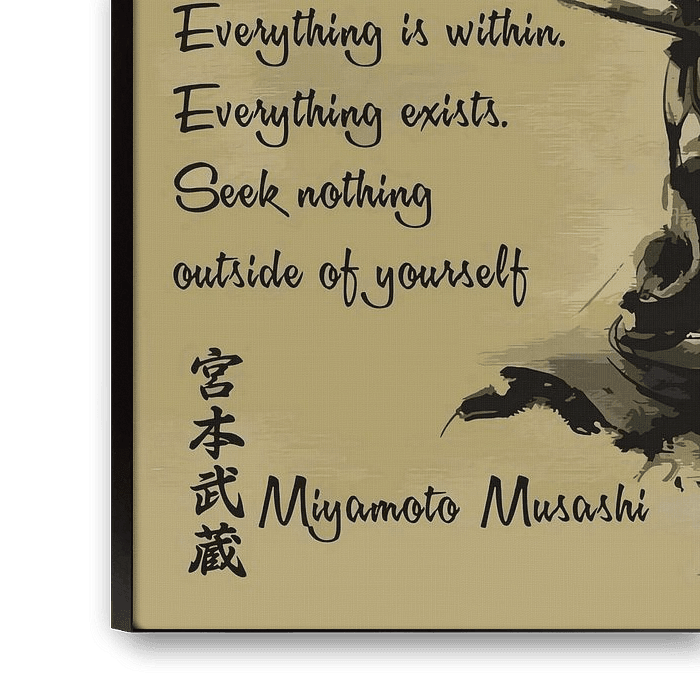 Everything is within.
Everything exists.
Seek nothing
outside of yourself
宮本武蔵
Miyamoto Musashi